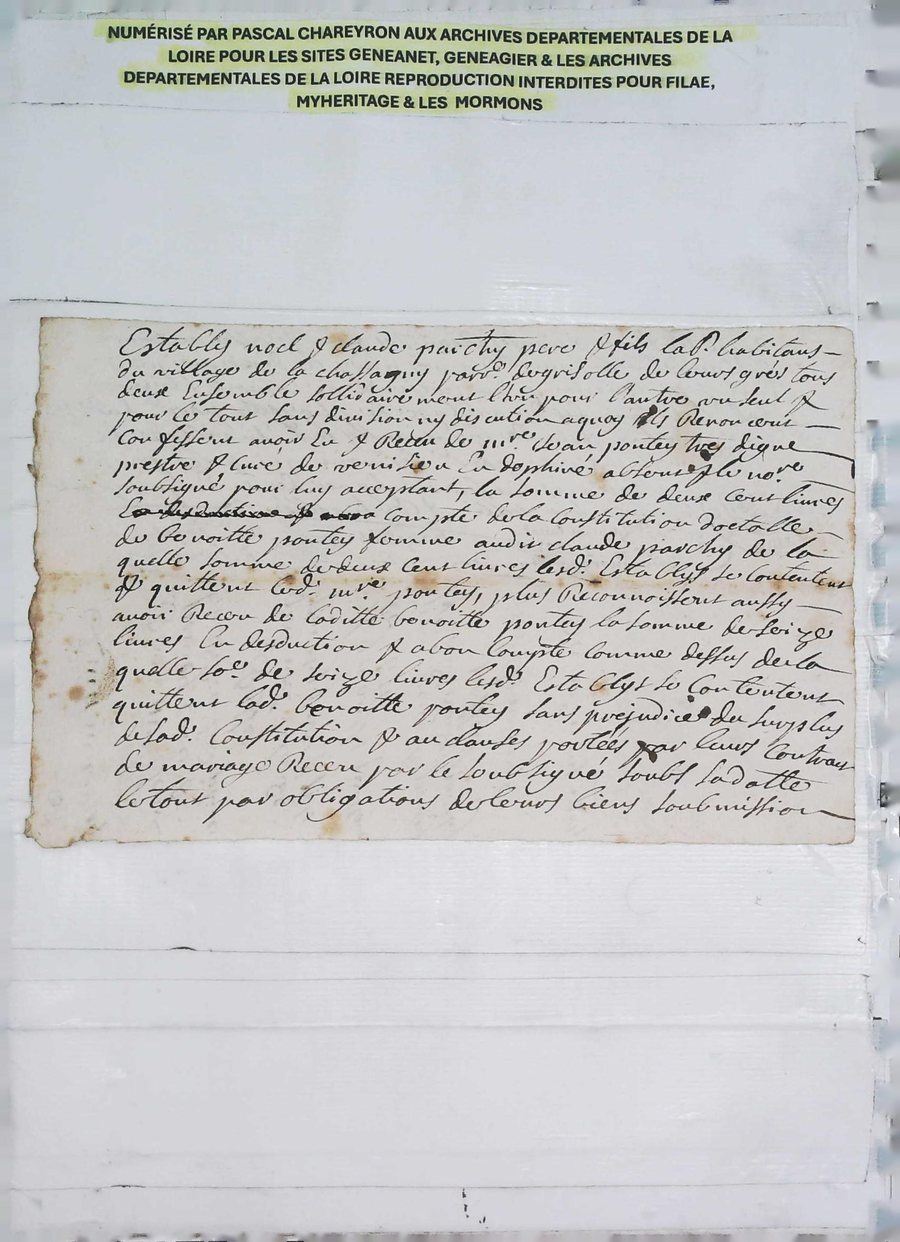 NUMÉRISÉ PAR PASCAL CHAREYRON AUX ARCHIVES DEPARTEMENTALES DE LA
LOIRE POUR LES SITES GENEANET, GENEAGIER & LES ARCHIVES
DEPARTEMENTALES DE LA LOIRE REPRODUCTION INTERDITES POUR FILAE,
MYHERITAGE & LES MORMONS
Establys noel & claude parchy pere & fils lab.rs habitans
du village de la chassagny parr.e de grisolle de leurs grés tous
deux Ensemble sollidairement l'un pour l'autre un seul &
pour le tout sans division ny discution aquoy ils Renoncent
Confessent avoir Eu & Receu de m.re Jean pontey tres digne
prestre & curé de venisieu En dophiné absent & le no.re
soubsigné pour luy acceptant, la somme de deux cent livres
compte de la Constitution doctalle
de benoitte pontey femme audit claude parchy de la
quelle somme de deux cent livres lesd. Establys se contentent
& quittent led. m.re pontey, plus Reconnoissent aussy
avoir Receu de laditte benoitte pontey la somme de seize
livres En desduction & a bon Compte comme dessus de la
quelle so.e de seize livres lesd. Establys se Contentent
quittent lad. benoitte pontey sans prejudice du surplus
de sad. Constitution & au clauses portées par leurs Contract
de mariage Receu par le soubsigné soubs sa datte
le tout par obligations de leurs biens soubmission